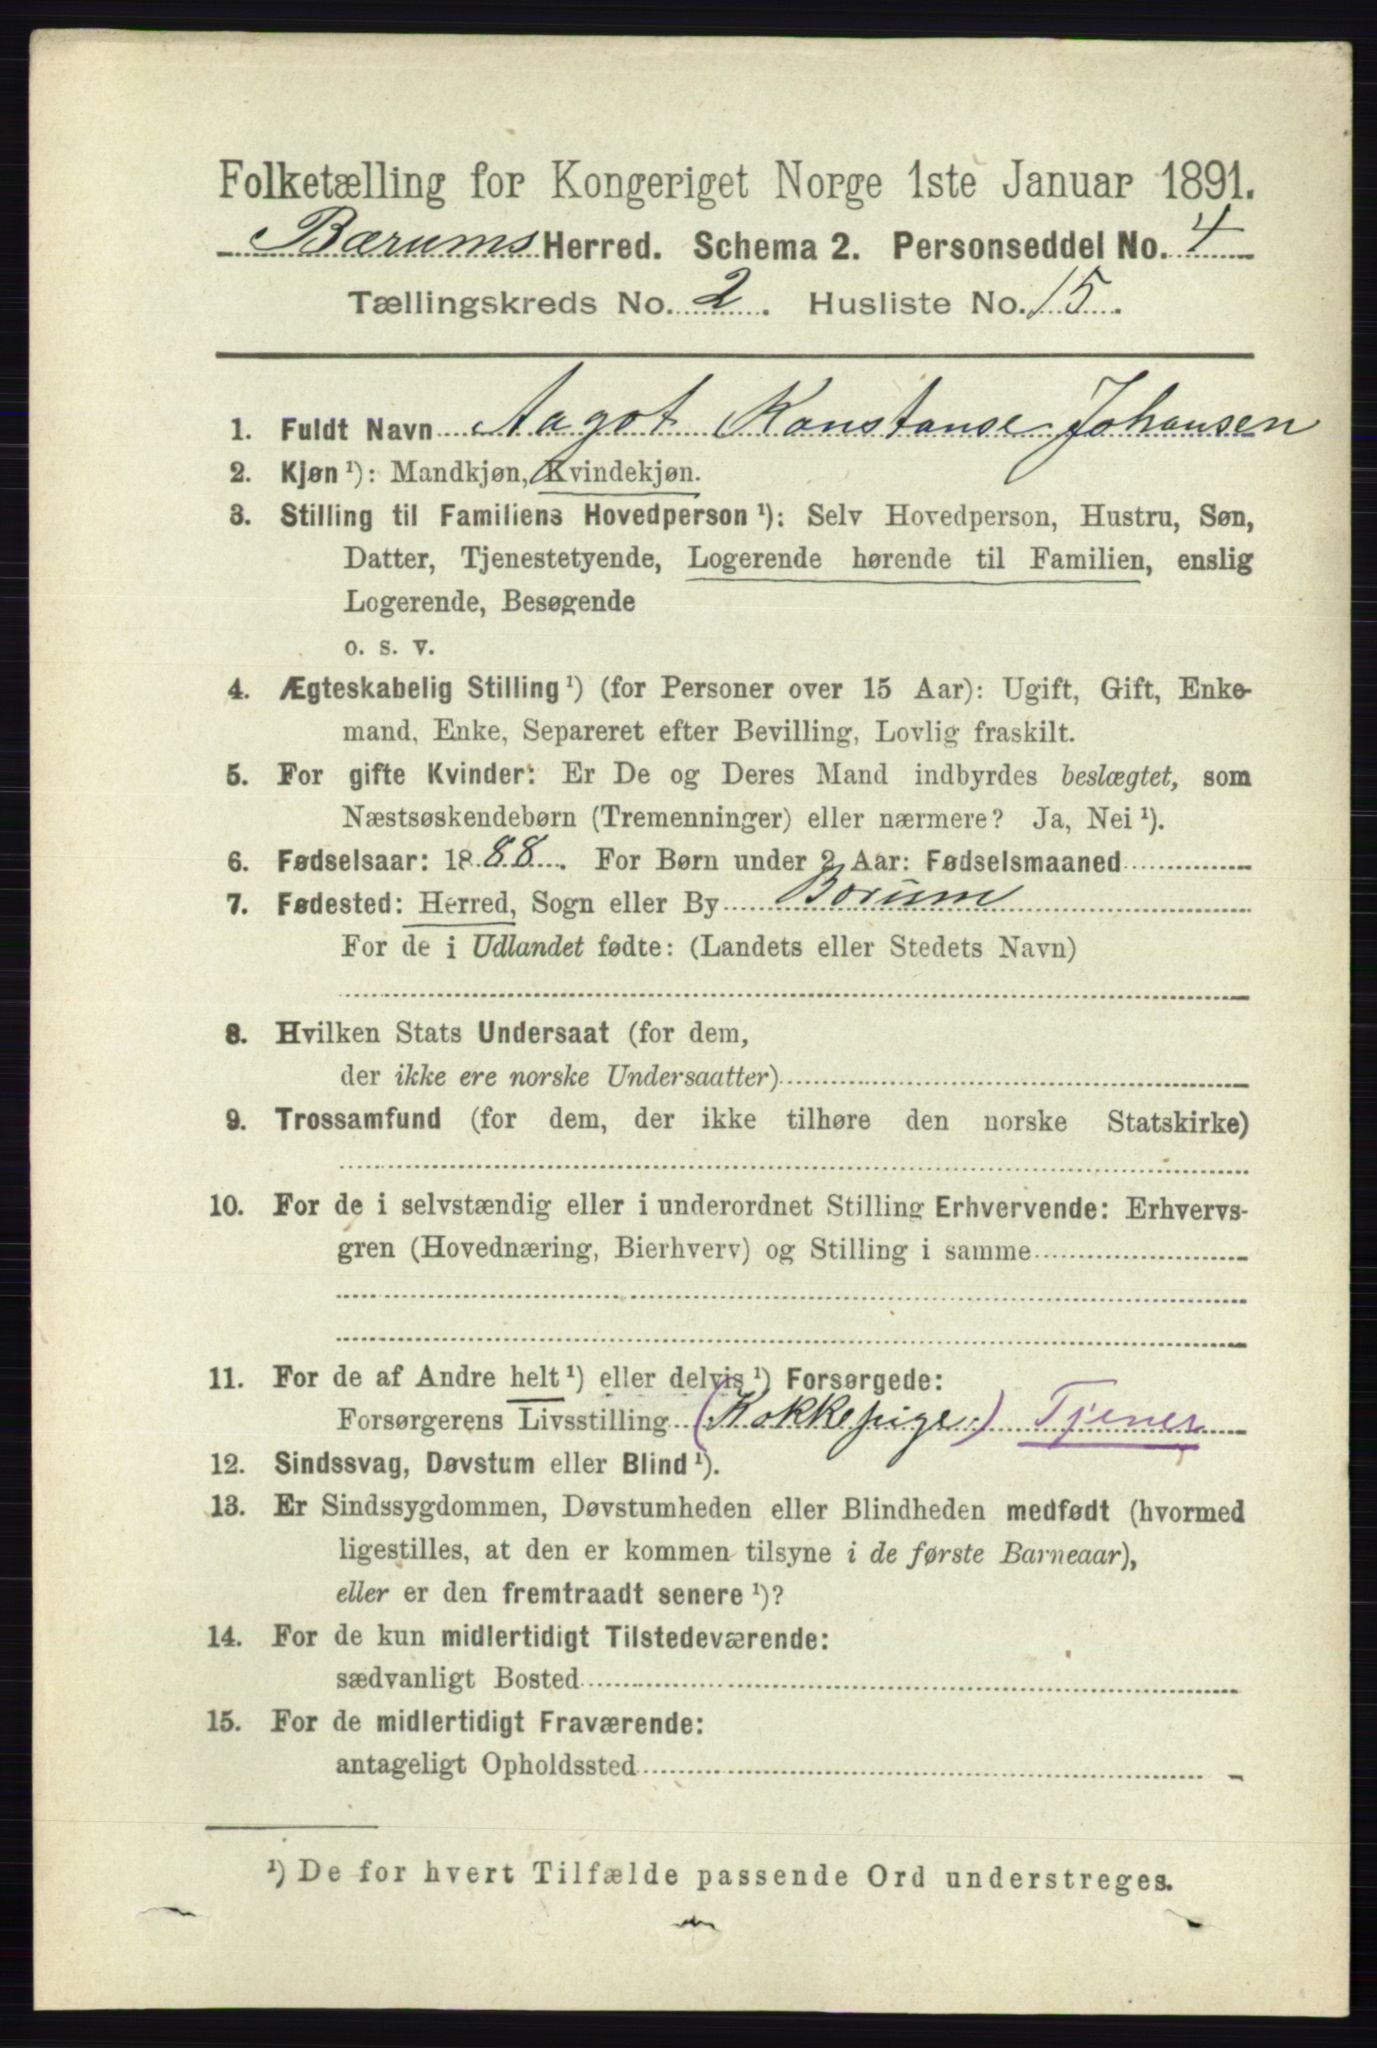 Folketælling for Kongeriget Norge 1ste Januar 1891.
Bærums Herred. Schema 2. Personseddel No. 4
Tællingskreds No. 2. Husliste No. 15.
1. Fuldt Navn Aagot Konstanse Johansen
2. Kjøn ¹): Mandkjøn, Kvindekjøn.
3. Stilling til Familiens Hovedperson ¹): Selv Hovedperson, Hustru, Søn,
Datter, Tjenestetyende, Logerende hørende til Familien, enslig
Logerende, Besøgende
o. s. v.
4. Ægteskabelig Stilling ¹) (for Personer over 15 Aar): Ugift, Gift, Enke-
mand, Enke, Separeret efter Bevilling, Lovlig fraskilt.
5. For gifte Kvinder: Er De og Deres Mand indbyrdes beslægtet, som
Næstsøskendebørn (Tremenninger) eller nærmere? Ja, Nei ¹).
6. Fødselsaar: 1888. For Børn under 2 Aar: Fødselsmaaned
7. Fødested: Herred, Sogn eller By Borum
For de i Udlandet fødte: (Landets eller Stedets Navn)
8. Hvilken Stats Undersaat (for dem,
der ikke ere norske Undersaatter)
9. Trossamfund (for dem, der ikke tilhøre den norske Statskirke)
10. For de i selvstændig eller i underordnet Stilling Erhvervende: Erhvervs-
gren (Hovednæring, Bierhverv) og Stilling i samme
11. For de af Andre helt ¹) eller delvis ¹) Forsørgede:
Forsørgerens Livsstilling (Kokkepige) Tjener
12. Sindssvag, Døvstum eller Blind ¹).
13. Er Sindssygdommen, Døvstumheden eller Blindheden medfødt (hvormed
ligestilles, at den er kommen tilsyne i de første Barneaar),
eller er den fremtraadt senere ¹)?
14. For de kun midlertidigt Tilstedeværende:
sædvanligt Bosted
15. For de midlertidigt Fraværende:
antageligt Opholdssted
¹) De for hvert Tilfælde passende Ord understreges.